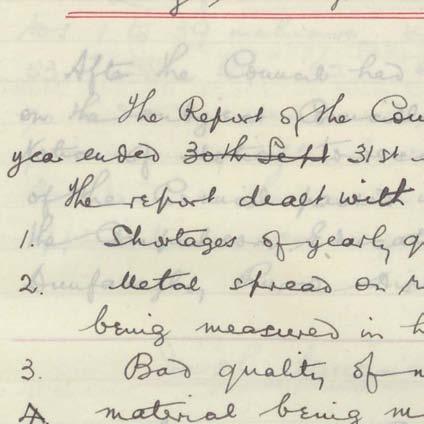 The Report of the Cou
year ended 30th Sept 31st
The report dealt with
1. Shortages of yearly q
2. Metal spread on r
being measured in h
3. Bad quality of m
4. material being m